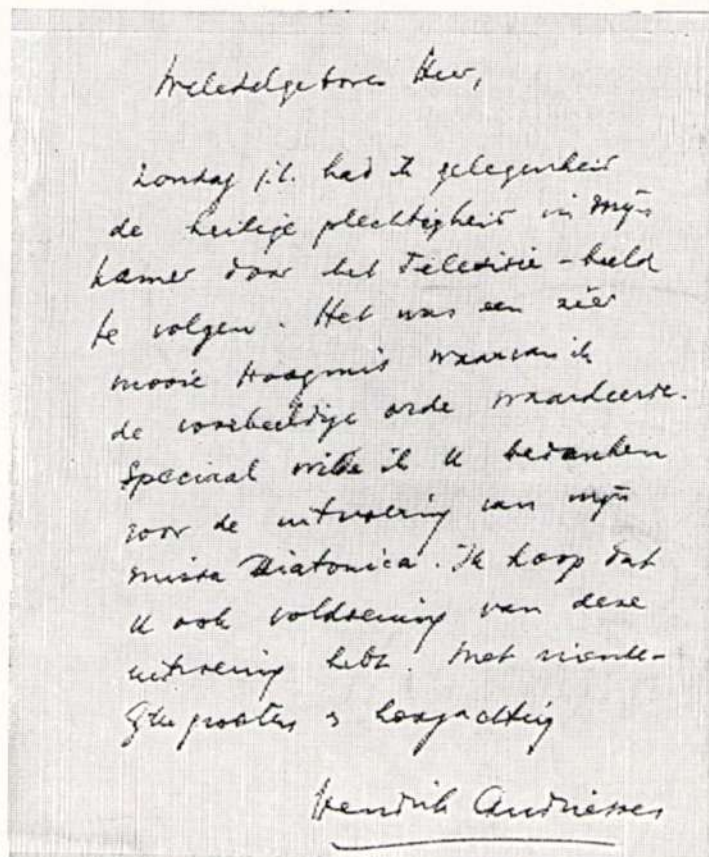 Weledelgeboren Heer,
zondag j.l. had ik gelegenheid
de heilige plechtigheid in mijn
kamer door het Televisie-beeld
te volgen. Het was een zéér
mooie Hoogmis waarvan ik
de voorbeeldige orde waardeerde.
Speciaal wilde ik U bedanken
voor de uitvoering van mijn
missa Diatonica. Ik hoop dat
U ook voldoening van deze
uitvoering hebt. Met vriende-
lijke groeten & hoogachting
Hendrik Andriessen